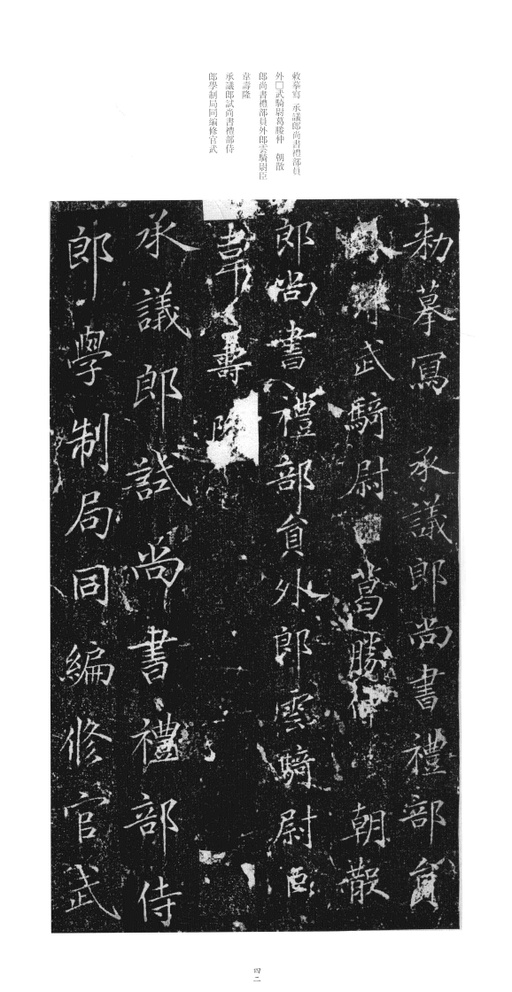 敕摹寫　承議郎尚書禮部員
外□武騎尉葛勝仲　朝散
郎尚書禮部員外郎雲騎尉臣
韋壽隆
承議郎試尚書禮部侍
郎學制局同編修官武
勑摹寫　承議郎尚書禮部員
武騎尉　葛勝仲　朝散
郎尚書禮部員外郎雲騎尉臣
韋壽隆
承議郎試尚書禮部侍
郎學制局同編修官武
四二